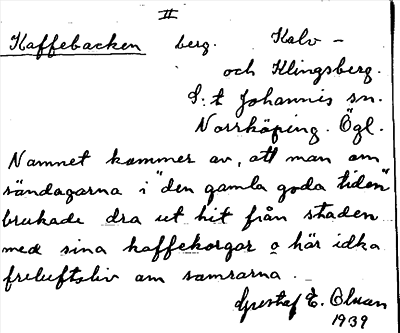 II
Kaffebacken berg. Kalv-
och Klingsberg.
S:t Johannis sn.
Norrköping. Ögl.
Namnet kommer av, att man om
söndagarna i "den gamla goda tiden"
brukade dra ut hit från staden
med sina kaffekorgar o här idka
friluftsliv om somrarna.
Gustaf E. Olsson
1939